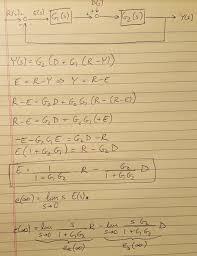 R(s) E(s) G₁(s) D(s) G₂(s) Y(s)
Y(s) = G₂(D + G₁(R-Y))
E = R-Y ⇒ Y = R-E
R-E = G₂D + G₂G₁(R-(R-E))
R-E = G₂D + G₂G₁(+E)
-E-G₂G₁E = G₂D-R
E(1+G₂G₁) = R-G₂D
E = 1/(1+G₁G₂) R - G₂/(1+G₁G₂) D
e(∞) = lim s→0 s E(s)
e(∞) = lim s→0 s/(1+G₁G₂) R - lim s→0 sG₂/(1+G₁G₂) D